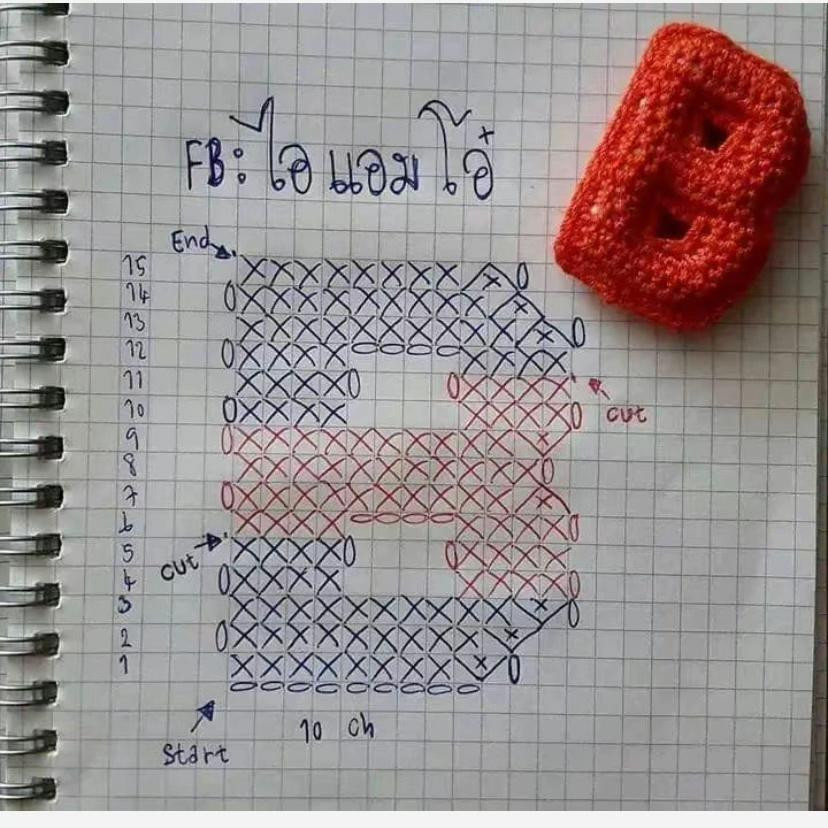 FB: ไอ แอม โอ๋
End
15
14
13
12
11
10
cut
9
8
7
6
5
cut
4
3
2
1
10 ch
Start